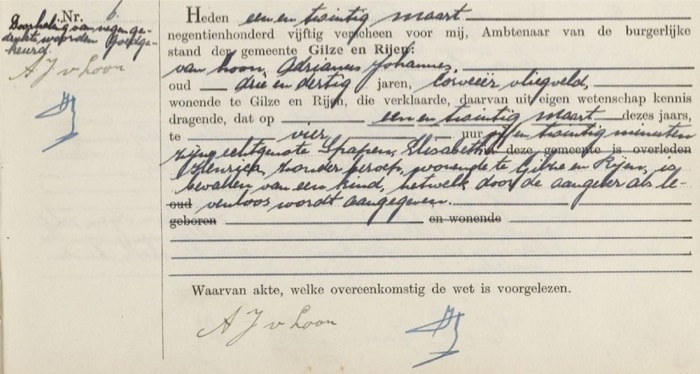 Nr. 6.
Doorhaling van negen ge-
drukte woorden goedge-
keurd.
A J v Loon
Heden een en twintig maart
negentienhonderd vijftig verscheen voor mij, Ambtenaar van de burgerlijke
stand der gemeente Gilze en Rijen:
van Loon, Adrianus Johannes,
oud drie en dertig jaren, corveeër vliegveld,
wonende te Gilze en Rijen, die verklaarde, daarvan uit eigen wetenschap kennis
dragende, dat op een en twintig maart dezes jaars,
te vier uur en twintig minuten
zijne echtgenote Spapen, Elisabeth deze gemeente is overleden
zonder beroep, wonende te Gilze en Rijen, is
bevallen van een kind, hetwelk door de aangever als le-
oud venloos wordt aangegeven.
geboren en wonende
Waarvan akte, welke overeenkomstig de wet is voorgelezen.
A J v Loon